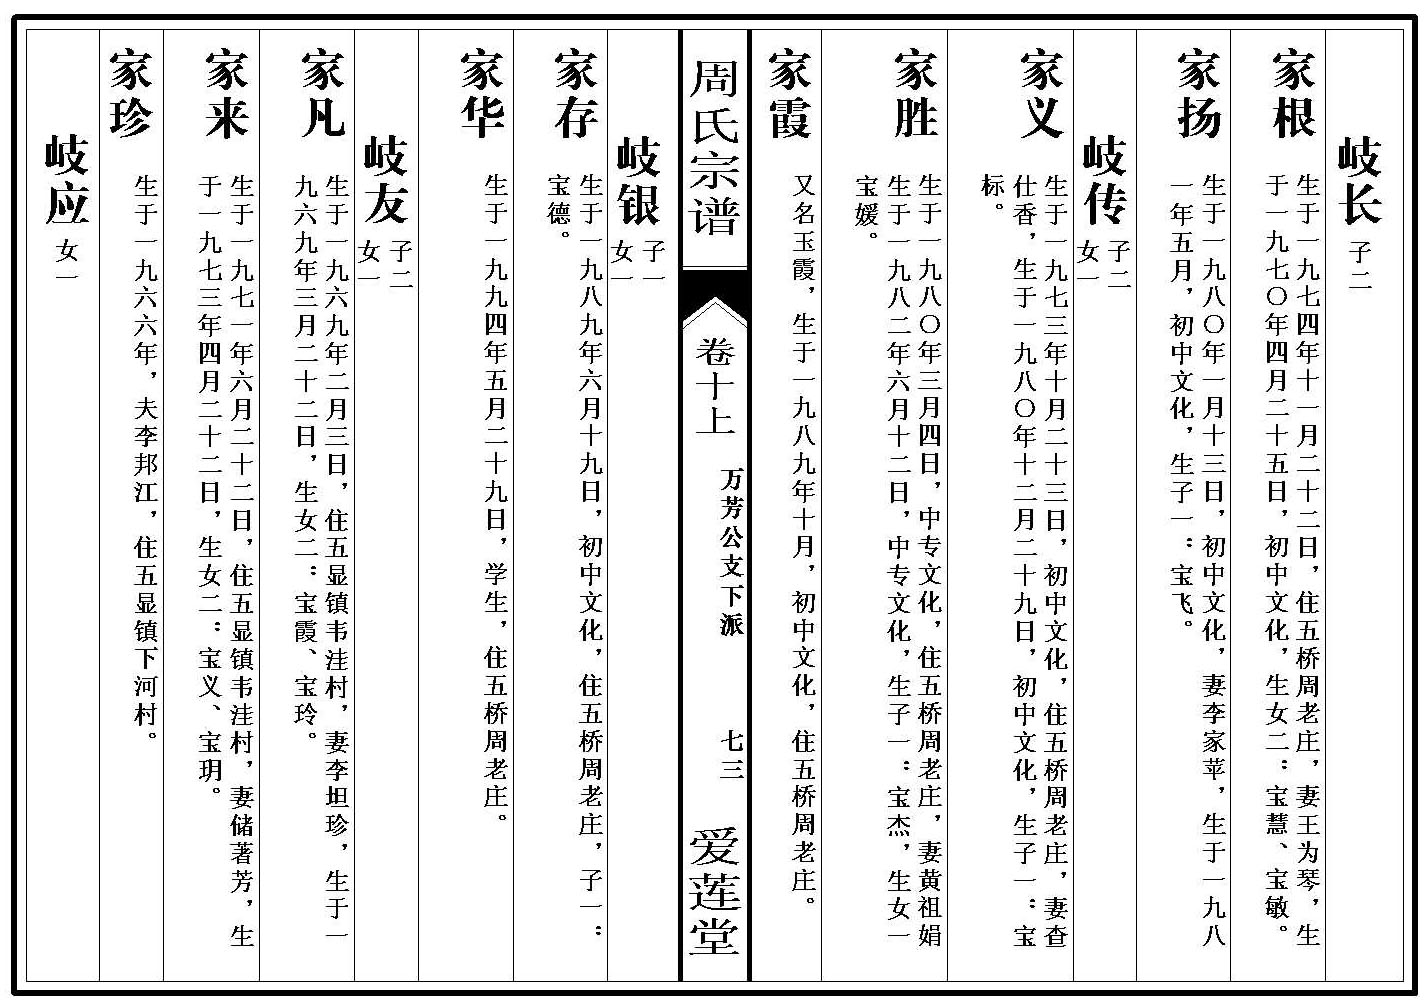 岐长
子二
家根
生于一九七四年十一月二十二日，住五桥周老庄，妻王为琴，生
于一九七〇年四月二十五日，初中文化，生女二：宝慧、宝敏。
家扬
生于一九八〇年一月十三日，初中文化，妻李家苹，生于一九八
一年五月，初中文化，生子一：宝飞。
岐传
子二
女一
家义
生于一九七三年十月二十三日，初中文化，住五桥周老庄，妻查
仕香，生于一九八〇年十二月二十九日，初中文化，生子一：宝
标。
家胜
生于一九八〇年三月四日，中专文化，住五桥周老庄，妻黄祖娟
生于一九八二年六月十二日，中专文化，生子一：宝杰，生女一
宝媛。
家霞
又名玉霞，生于一九八九年十月，初中文化，住五桥周老庄。
周氏宗谱
卷十上
万芳公支下派
七三
爱莲堂
岐银
子一
女一
家存
生于一九八九年六月十九日，初中文化，住五桥周老庄，子一：
宝德。
家华
生于一九九四年五月二十九日，学生，住五桥周老庄。
岐友
子二
女一
家凡
生于一九六九年二月三日，住五显镇韦洼村，妻李坦珍，生于一
九六九年三月二十二日，生女二：宝霞、宝玲。
家来
生于一九七一年六月二十二日，住五显镇韦洼村，妻储著芳，生
于一九七三年四月二十二日，生女二：宝义、宝玥。
家珍
生于一九六六年，夫李邦江，住五显镇下河村。
岐应
女一